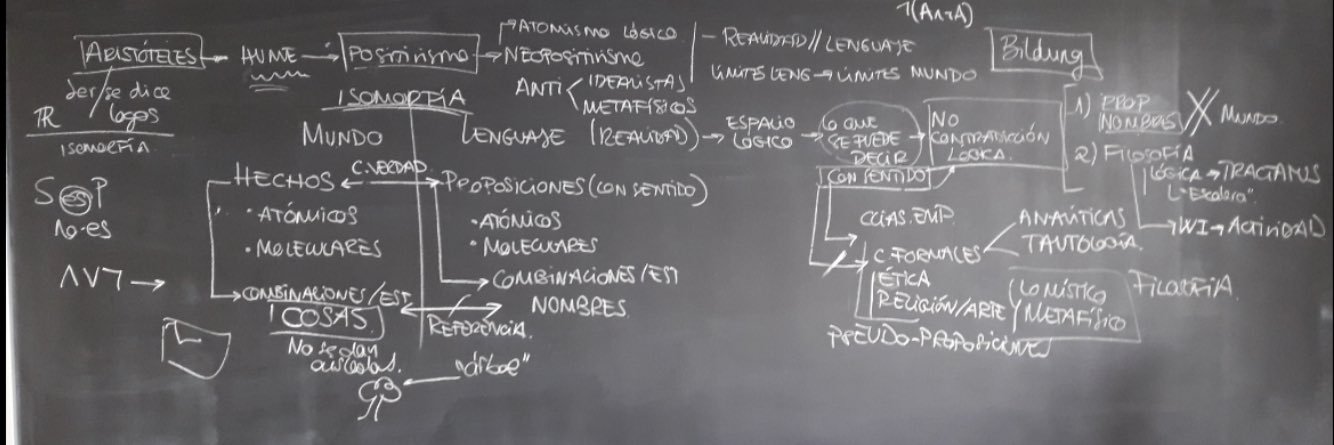 ¬(A∧¬A)
ARISTÓTELES → HUME → Positivismo → ATOMISMO LÓGICO
→ NEOPOSITIVISMO
ANTI < IDEALISTAS
METAFÍSICOS
- REALIDAD // LENGUAJE
LÍMITES LENG → LÍMITES MUNDO
Bildung
ser/se dice
logos
TR
ISOMORFÍA.
S es P
no-es
∧ ∨ ¬ →
ISOMORFÍA
MUNDO
LENGUAJE (REALIDAD) → ESPACIO LÓGICO → LO QUE SE PUEDE DECIR → NO CONTRADICCIÓN LÓGICA.
CON SENTIDO
HECHOS ↔ C.VERDAD. → PROPOSICIONES (CON SENTIDO)
· ATÓMICOS
· MOLECULARES
COMBINACIONES/EST.
COSAS.
No se dan
aisladas.
· ATÓMICOS
· MOLECULARES
COMBINACIONES/EST
NOMBRES.
REFERENCIA.
"árbol"
CCIAS. EMP.
C. FORMALES < ANALÍTICAS
TAUTOLOGÍA.
ÉTICA
RELIGIÓN/ARTE
LO MÍSTICO
Y METAFÍSICO
FILOSOFÍA.
PSEUDO-PROPOSICIONES
1) PROP
NOMBRES // MUNDO.
2) FILOSOFÍA
LÓGICA → TRACTATUS
"Escalera".
→ WI → ACTIVIDAD